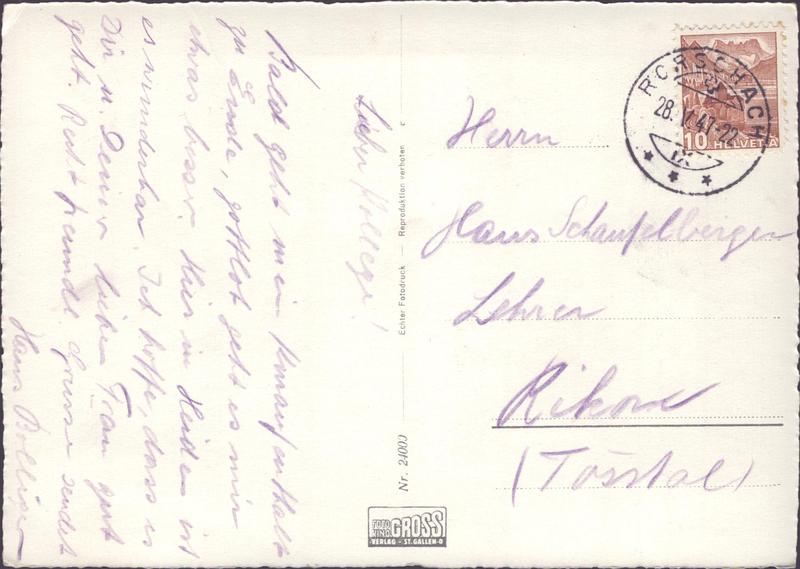 Lieber Kollege!
Bald geht mein Kuraufenthalt
zu Ende, gottlob geht es mir
etwas besser. Hier in Heiden ist
es wunderbar. Ich hoffe, dass es
Dir u. Deiner lieben Frau gut
geht. Recht freundl. Grüsse sendet
Hans Bolliger
Echter Fotodruck — Reproduktion verboten
Nr. 24000
FOTO GROSS
VERLAG - ST. GALLEN-O
RORSCHACH
28. V. 41-22
IX
10 HELVETIA
Herrn
Hans Schaufelberger
Lehrer
Rikon
(Tösstal)